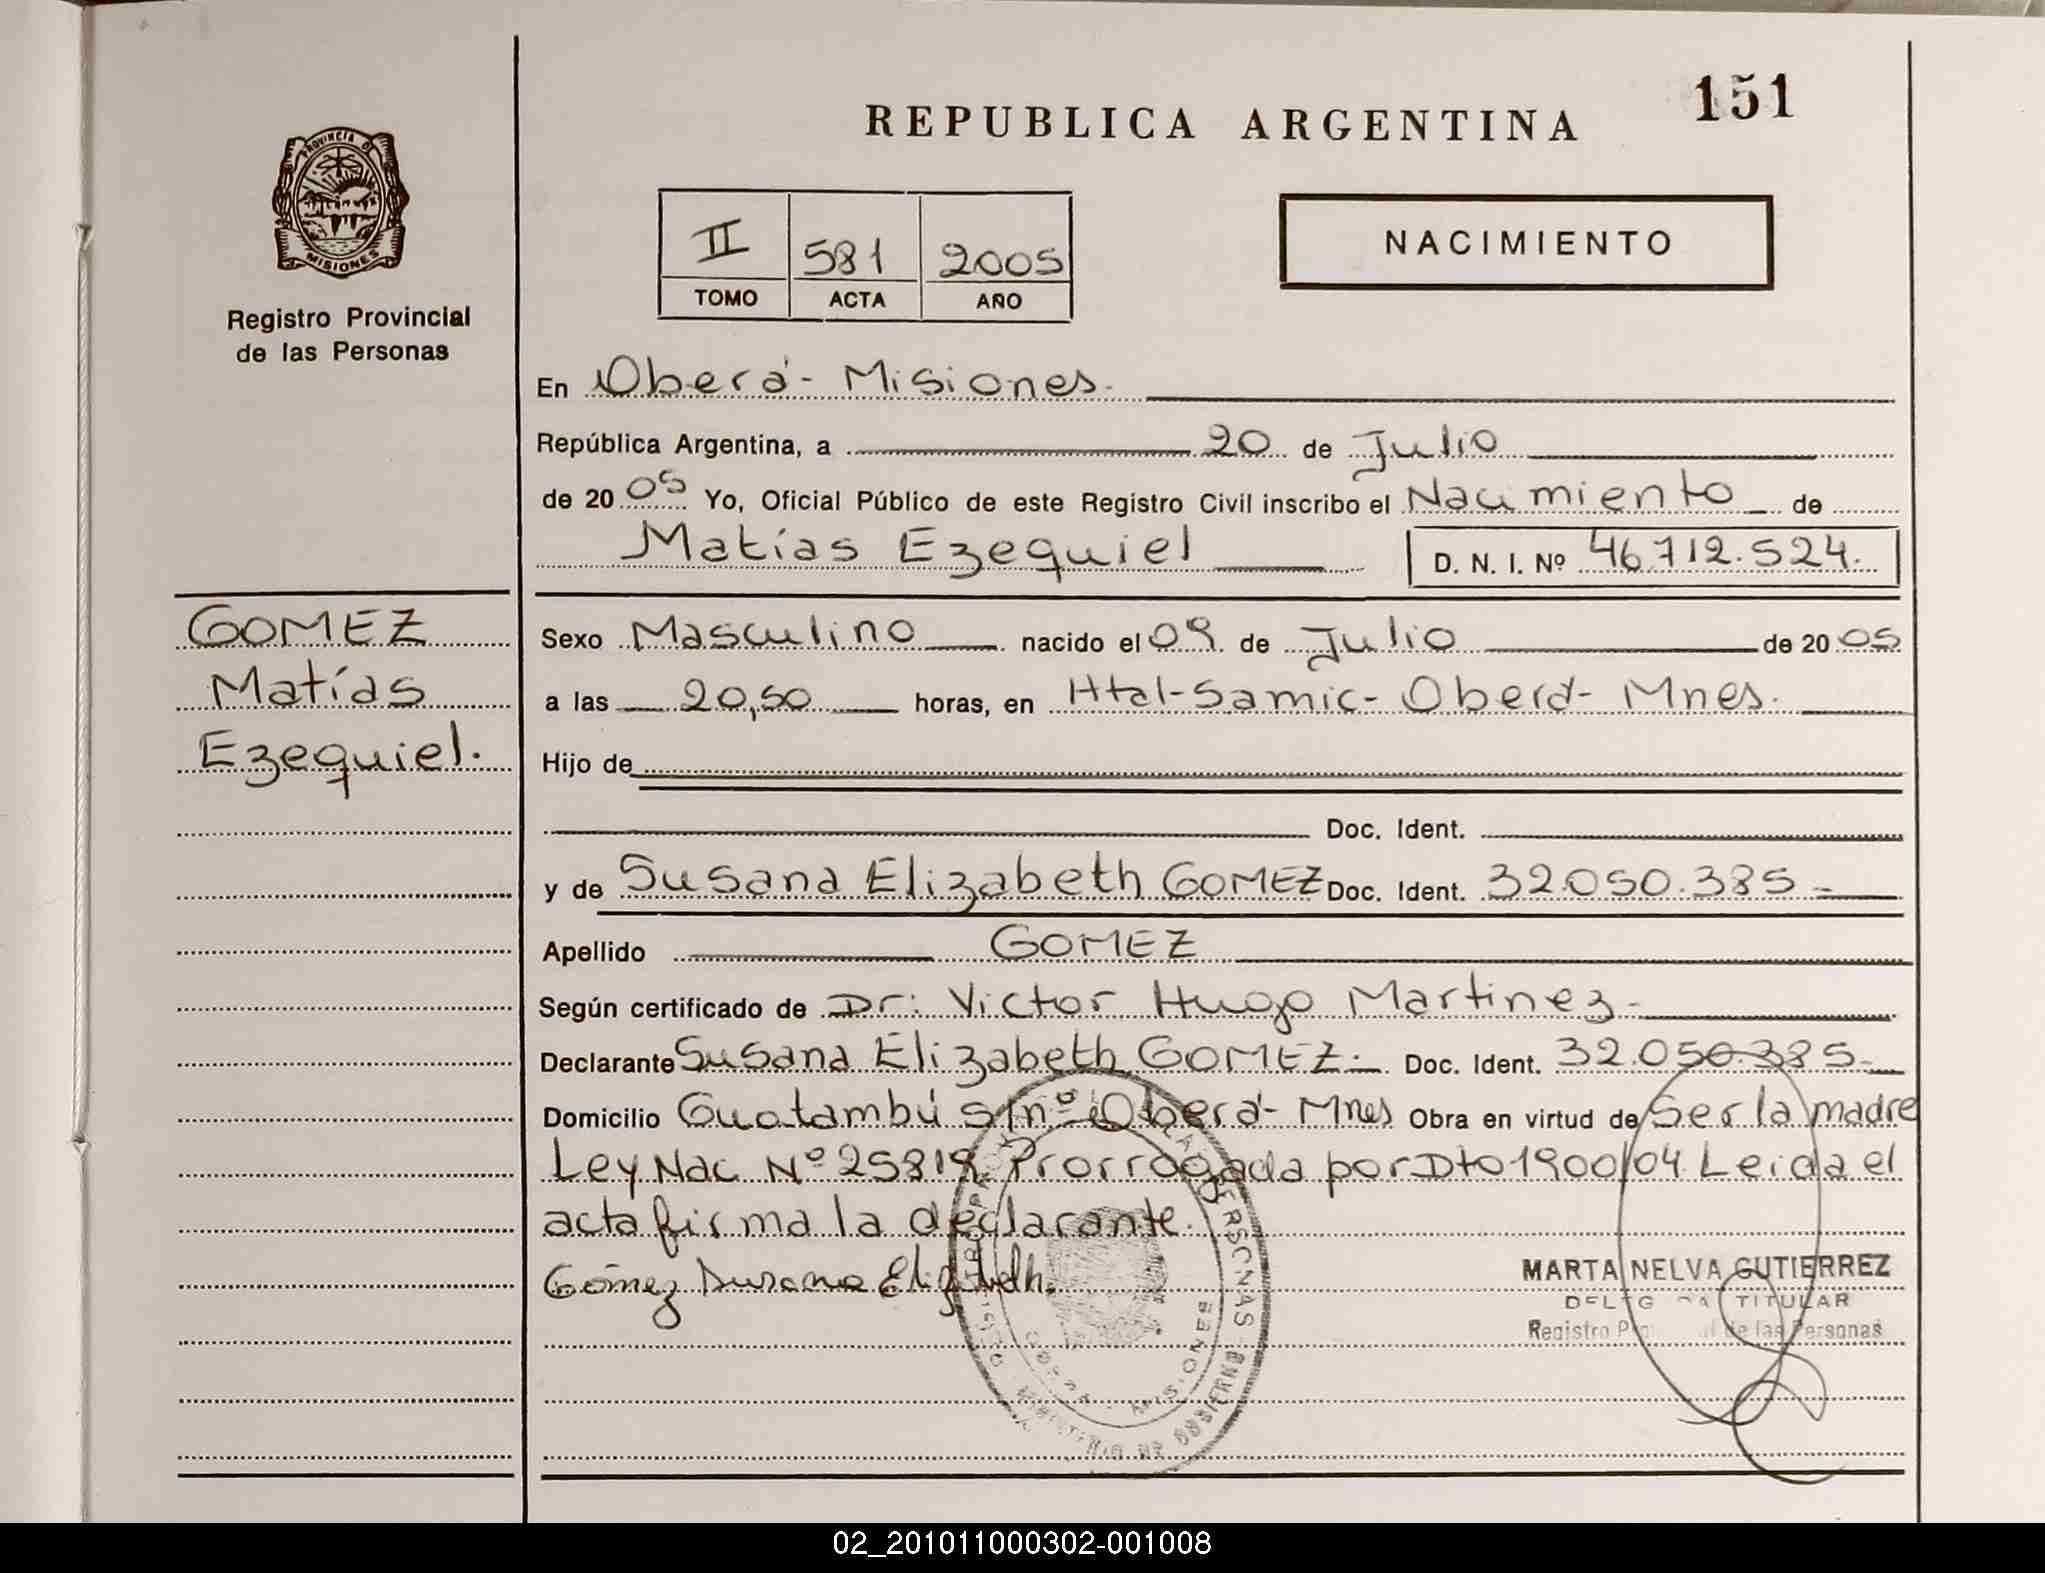 151
REPUBLICA ARGENTINA
PROVINCIA DE
MISIONES
Registro Provincial
de las Personas
II 581 2005
TOMO ACTA AÑO
NACIMIENTO
En Oberá- Misiones.
República Argentina, a 20 de Julio
de 2005 Yo, Oficial Público de este Registro Civil inscribo el Nacimiento de
Matías Ezequiel D. N. I. Nº 46.712.524.
GOMEZ
Matías
Ezequiel.
Sexo Masculino nacido el 09 de Julio de 2005
a las 20,50 horas, en Htal-Samic- Oberá- Mnes.
Hijo de
Doc. Ident.
y de Susana Elizabeth GOMEZ Doc. Ident. 32.050.385-
Apellido GOMEZ
Según certificado de Dr: Victor Hugo Martinez-
Declarante Susana Elizabeth GOMEZ.- Doc. Ident. 32.050.385-
Domicilio Guatambú s/nº Oberá- Mnes Obra en virtud de Ser la madre
Ley Nac Nº 25819. Prorrogada por Dto 1900/04 Leida el
acta firma la declarante.
Gómez Susana Elizabeth.
MARTA NELVA GUTIERREZ
TITULAR
Registro de las Personas
PERSONAS
MINISTERIO DE GOBIERNO
MISIONES
02_201011000302-001008